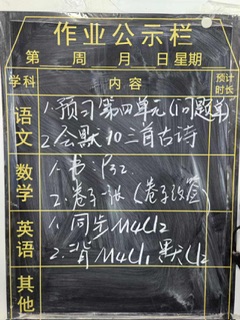 作业公示栏
第 周 月 日 星期
学科 内容 预计时长
语文 1. 预习第四单元(问题单)
2. 会默10三首古诗
数学 1. 书:P32
2. 卷子一张(卷子改签)
英语 1. 同步M4U2
2. 背M4U1, 默U2
其他